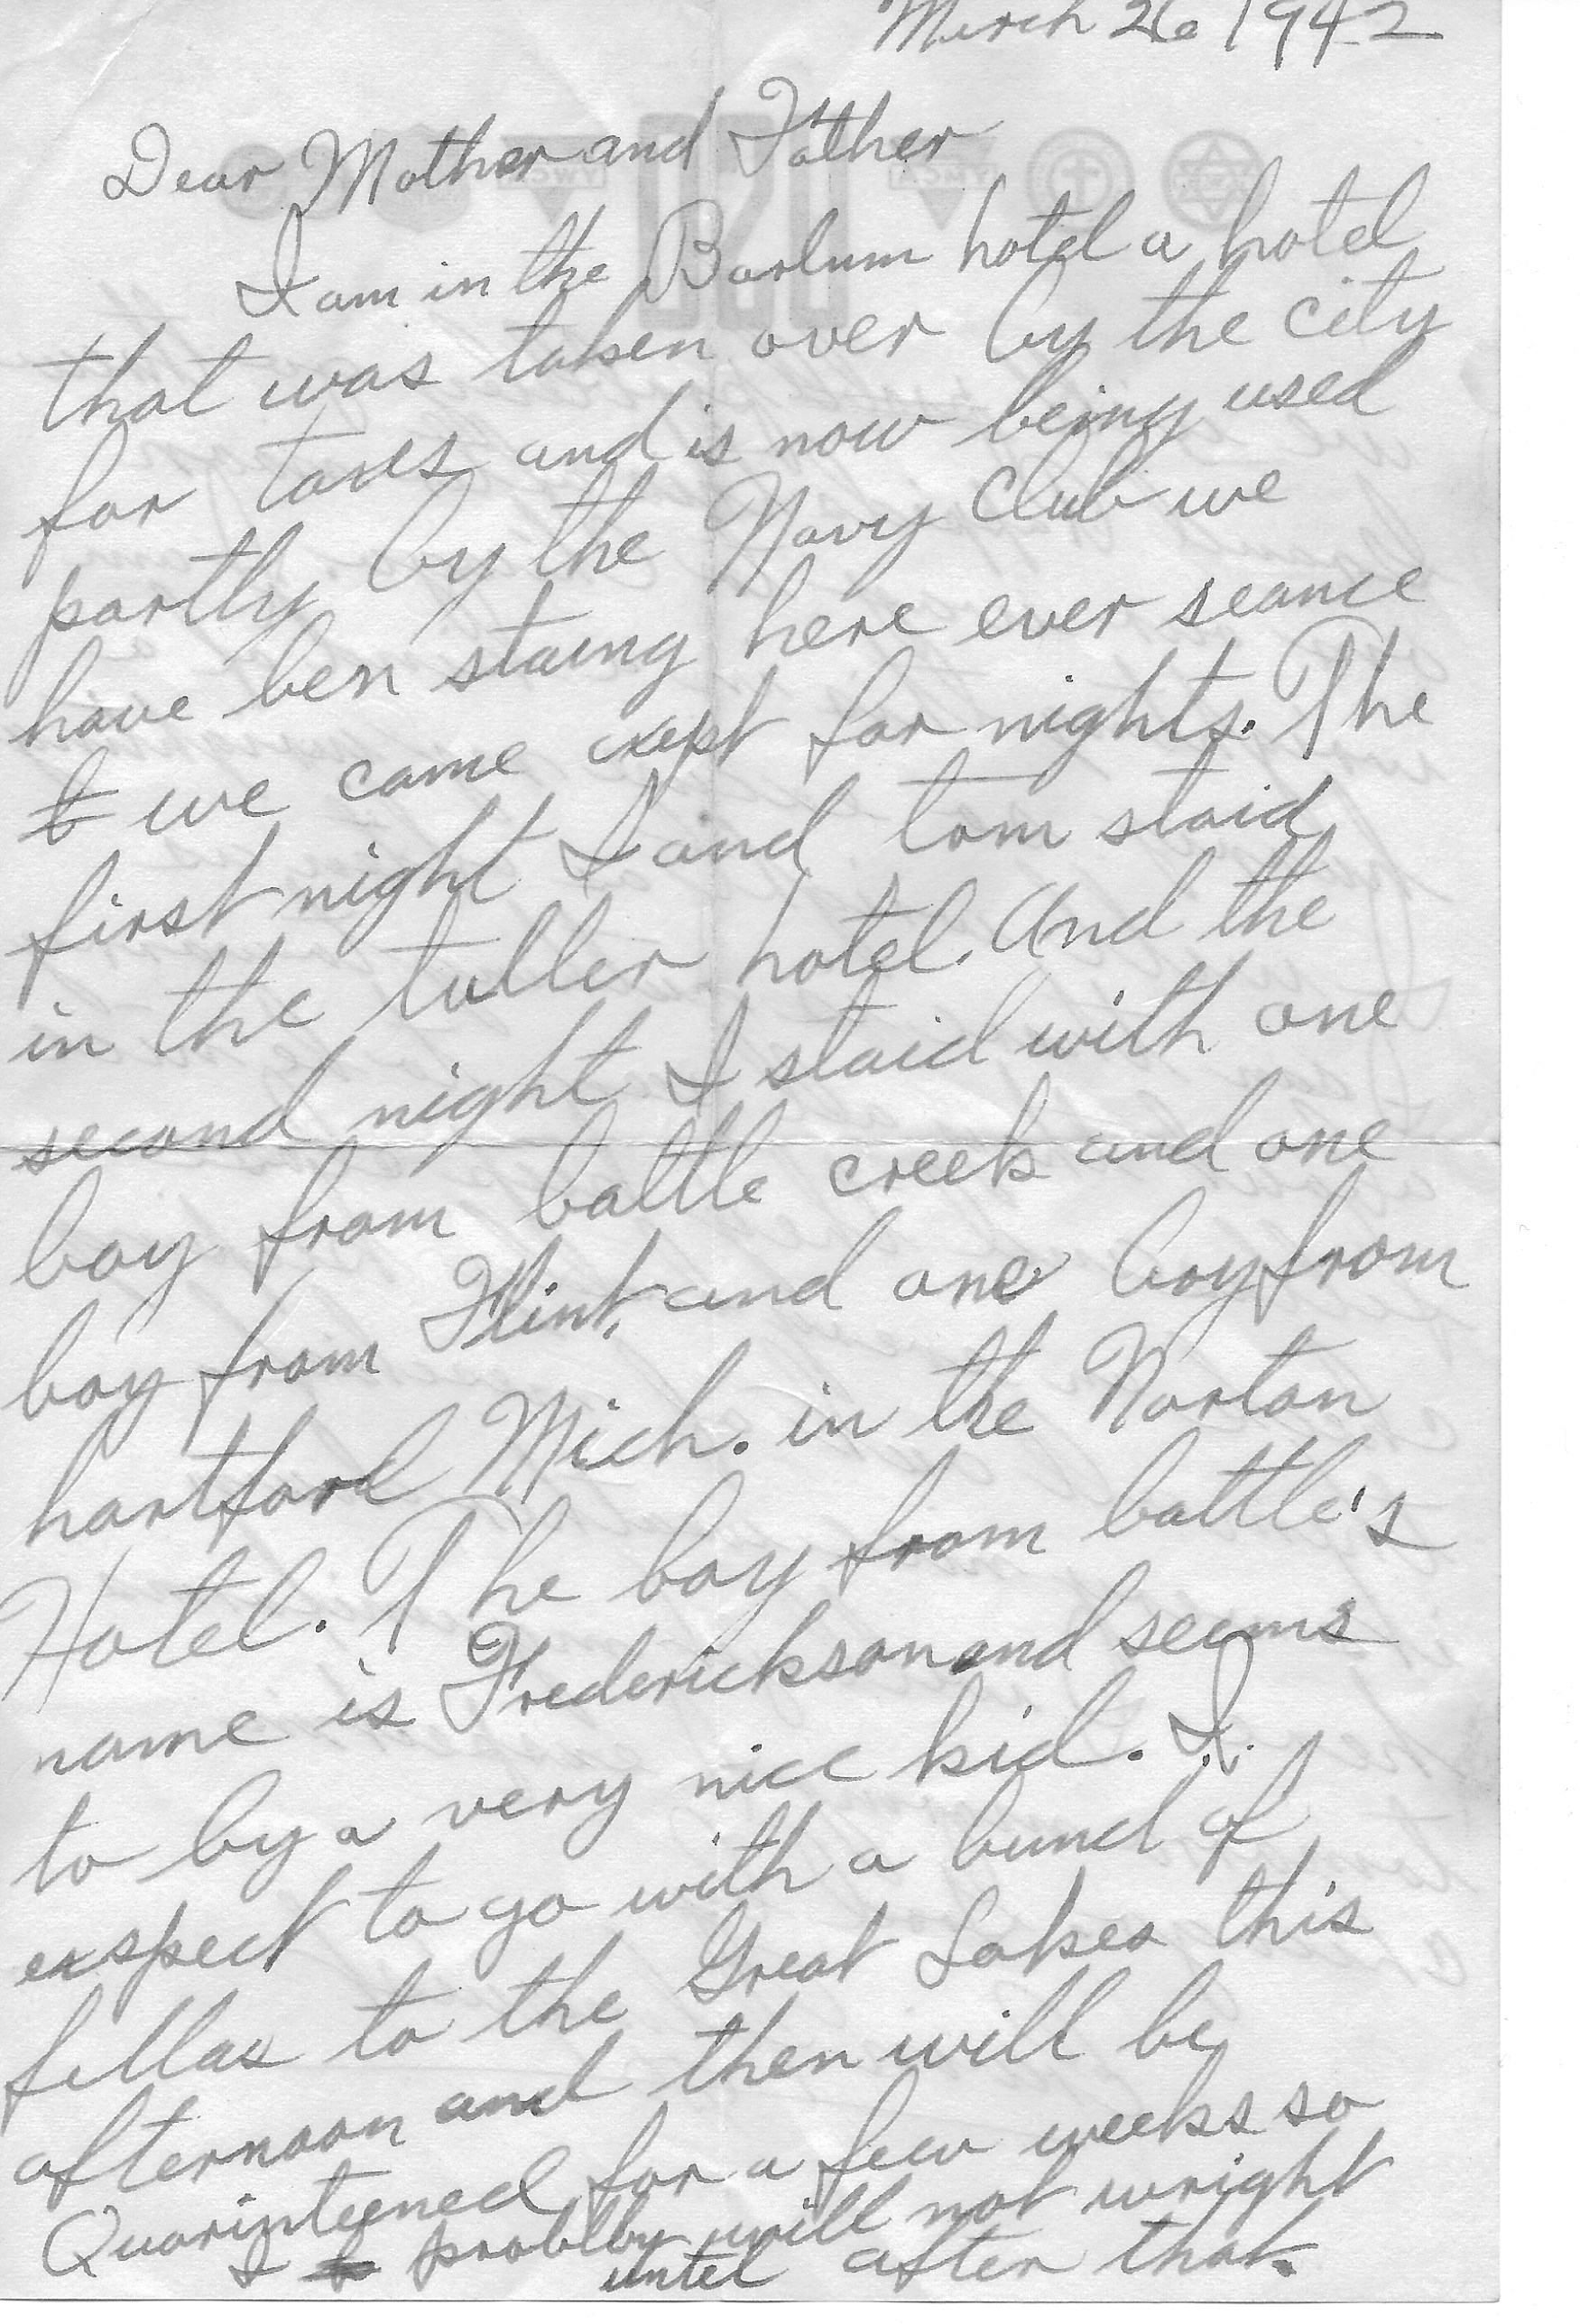 March 26 1942
Dear Mother and Father
I am in the Barlum hotel a hotel
that was taken over by the city
for taxes and is now being used
partly by the Navy Club we
have ben staing here ever seance
t we came exept for nights. The
first night I and tom staid
in the tuller hotel. And the
second night I staid with one
boy from battle creek and one
boy from Flint, and one boy from
hartford Mich. in the Norton
Hotel. The boy from battle's
name is Frederickson and seems
to by a very nice kid. I
exspect to go with a bunch of
fellas to the Great Lakes this
afternoon and then will be
Quarinteened for a few weeks so
I problby will not wright
until after that.